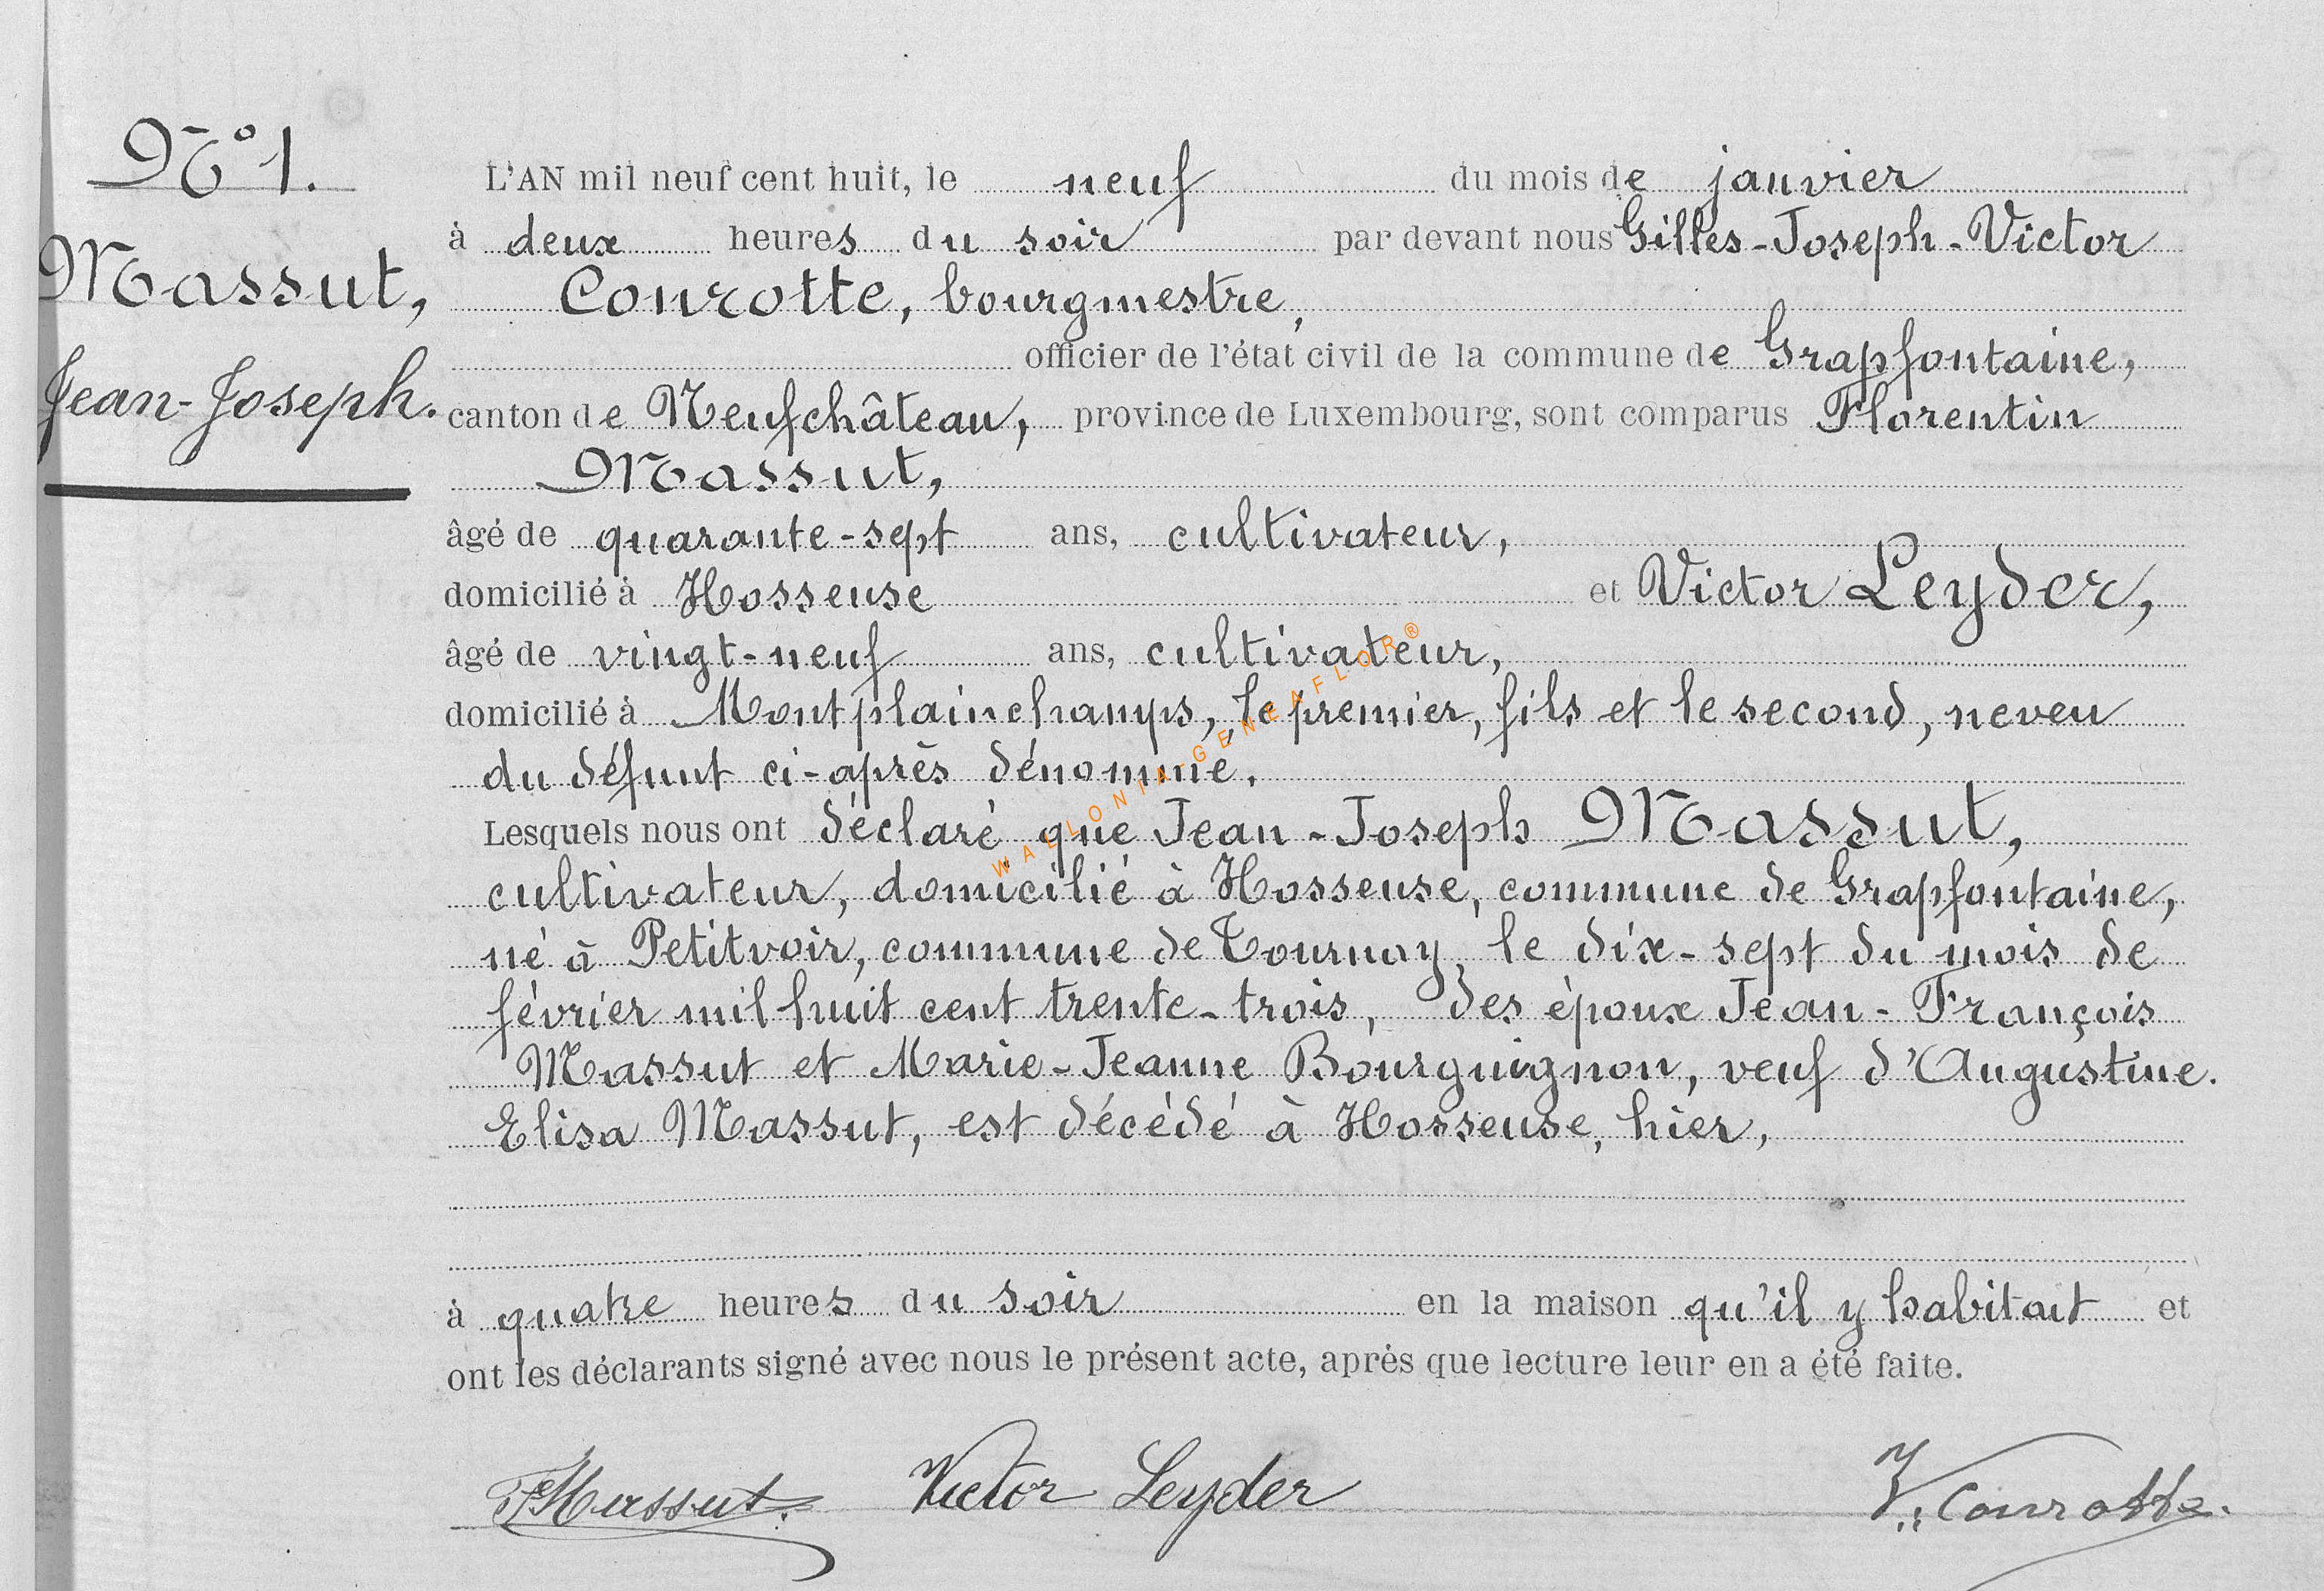 N° 1.
Massut,
Jean-Joseph.
L'AN mil neuf cent huit, le neuf du mois de janvier
à deux heures du soir par devant nous Gilles-Joseph-Victor
Conrotte, bourgmestre,
officier de l'état civil de la commune de Grapfontaine,
canton de Neufchâteau, province de Luxembourg, sont comparus Florentin
Massut,
âgé de quarante-sept ans, cultivateur,
domicilié à Hosseuse et Victor Leyder,
âgé de vingt-neuf ans, cultivateur,
domicilié à Montplainchamps, le premier, fils et le second, neveu
du défunt ci-après dénommé.
Lesquels nous ont déclaré que Jean-Joseph Massut,
cultivateur, domicilié à Hosseuse, commune de Grapfontaine,
né à Petitvoir, commune de Tournay, le dix-sept du mois de
février mil huit cent trente-trois, des époux Jean-François
Massut et Marie-Jeanne Bourguignon, veuf d'Augustine.
Elisa Massut, est décédé à Hosseuse, hier,
à quatre heures du soir en la maison qu'il y habitait et
ont les déclarants signé avec nous le présent acte, après que lecture leur en a été faite.
FMassut. Victor Leyder V. Conrotte.
WALLONIA-GENEAFLOR®